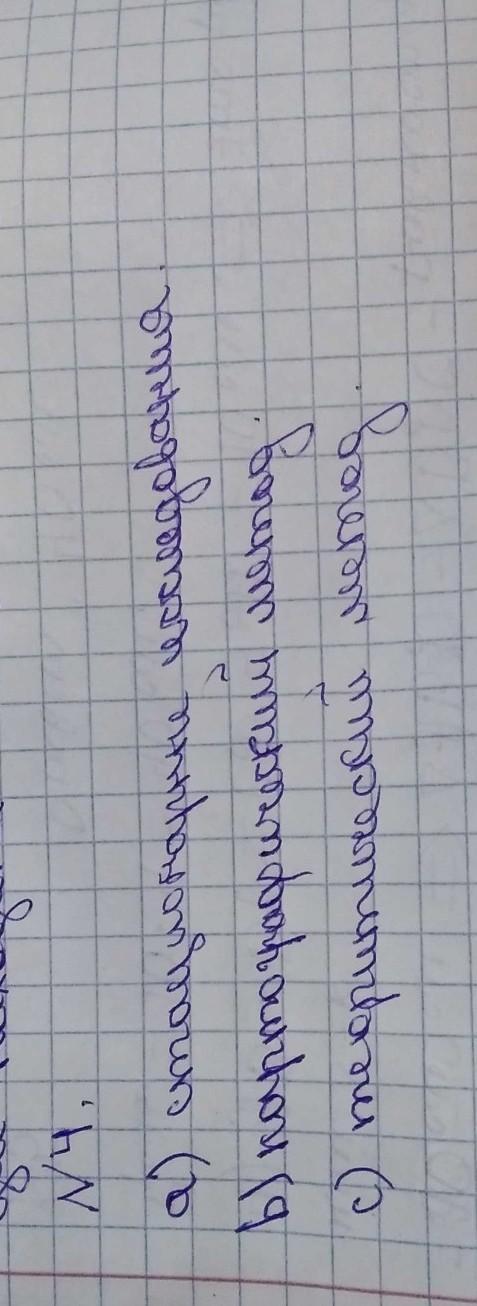 N4.
a) стационарние исследования.
b) картографический метод.
c) теоритический метод.